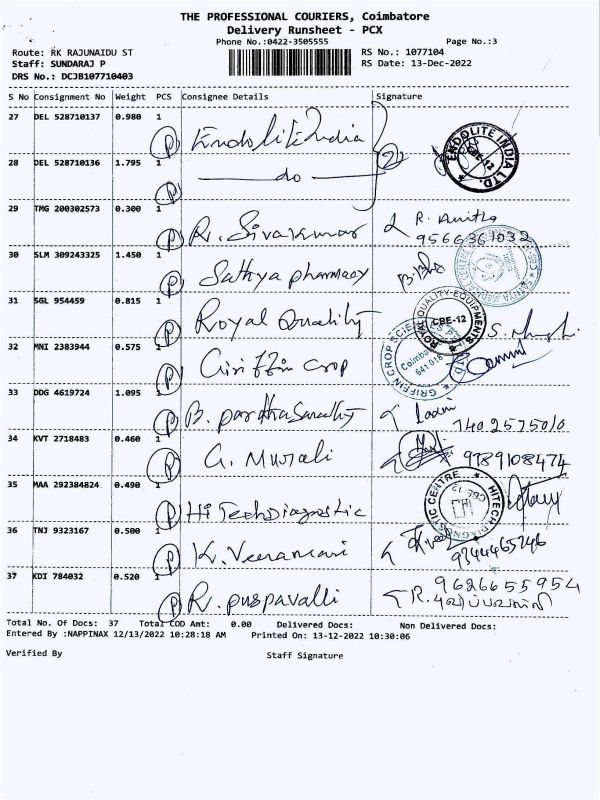 THE PROFESSIONAL COURIERS, Coimbatore
Delivery Runsheet - PCX
Phone No.:0422-3505555 Page No.:3
Route: RK RAJUNAIDU ST RS No.: 1077104
Staff: SUNDARAJ P RS Date: 13-Dec-2022
DRS No.: DCJB107710403
S No Consignment No Weight PCS Consignee Details Signature
27 DEL 528710137 0.980 1 P Endolite India 2 ENDOLITE INDIA LTD. CBE-12
28 DEL 528710136 1.795 1 P do
29 TMG 200302573 0.300 1 P R. Sivakumar R. Anitha
9566361032
30 SLM 309243325 1.450 1 P Sathya pharmacy
31 SGL 954459 0.815 1 P Royal Quality ROYAL QUALITY EQUIPMENTS CBE-12
32 MNI 2383944 0.575 1 P Griffin crop GRIFFIN CROP Coimbatore 641 018
33 DDG 4619724 1.095 1 P B. pardhasarathy
7402575010
34 KVT 2718483 0.460 1 P G. Murali 9789108474
35 MAA 292384824 0.490 1 P Hi Tech Diagnostic HITECH DIAGNOSTIC CENTRE
36 TNJ 9323167 0.500 1 P K. Veeramani
9344465246
37 KDI 784032 0.520 1 P R. puspavalli 9626655954
R. புஷ்பவள்ளி
Total No. Of Docs: 37 Total COD Amt: 0.00 Delivered Docs: Non Delivered Docs:
Entered By :NAPPINAX 12/13/2022 10:28:18 AM Printed On: 13-12-2022 10:30:06
Verified By Staff Signature